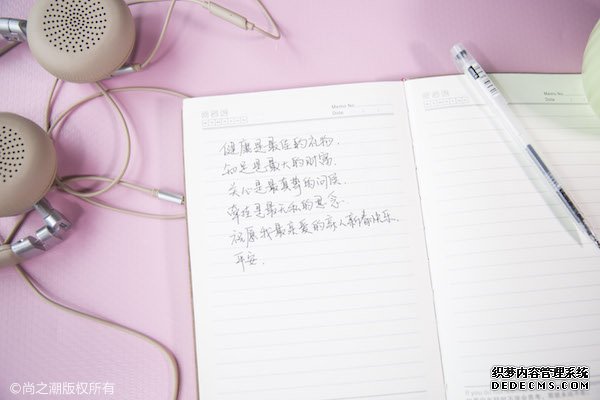 Memo No.
Date
Memo No.
Date
健康是最佳的礼物,
知足是最大的财富,
关心是最真挚的问候,
牵挂是最无私的思念,
祝愿我最亲爱的家人新春快乐,
平安.
If you do no
©尚之潮版权所有
织梦内容管理系统
DEDECMS.COM